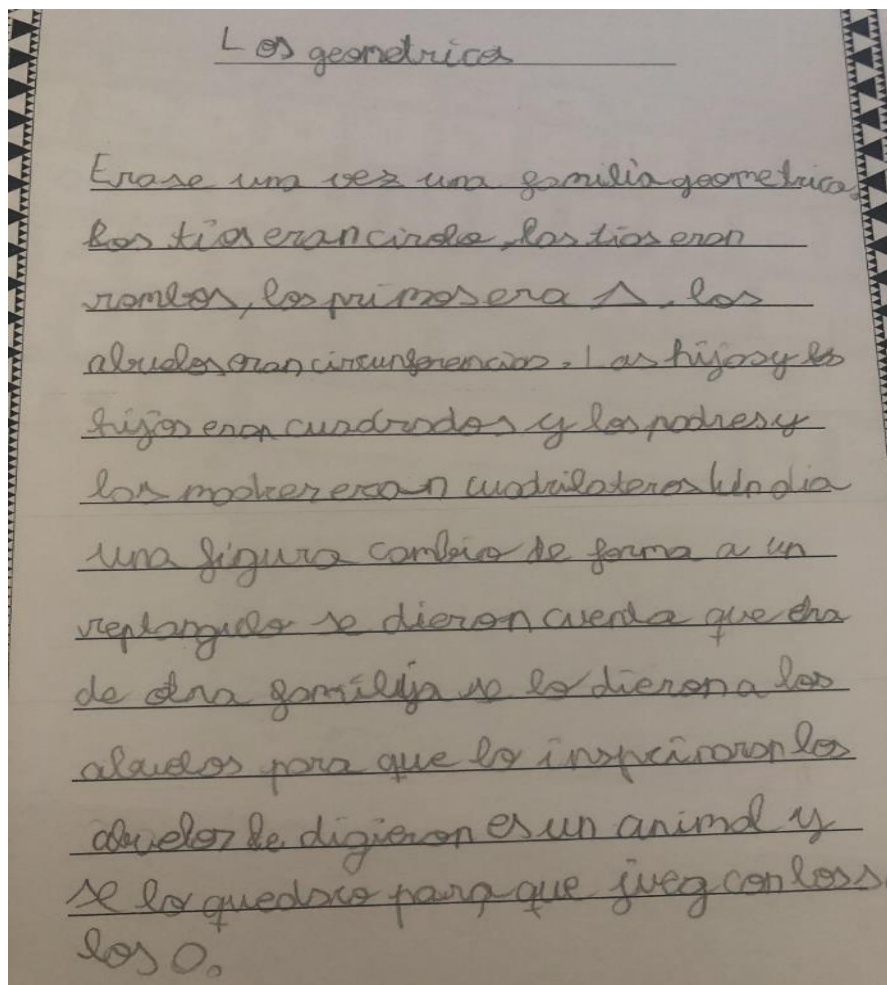 Los geometricos
Erase una vez una familia geometrica,
Los tios eran circulo, las tias eran
rombos, los primos era △. los
abuelos eran circunferencias. Las hijas y los
hijos eran cuadrados y los padres y
las madres eran cuadrilateros Un dia
una figura cambio de forma a un
reptangulo se dieron cuenta que era
de otra familija se lo dieron a los
abuelos para que lo inspecinaron los
abuelos le digieron es un animal y
se lo quedaro para que jueg con los
los O.